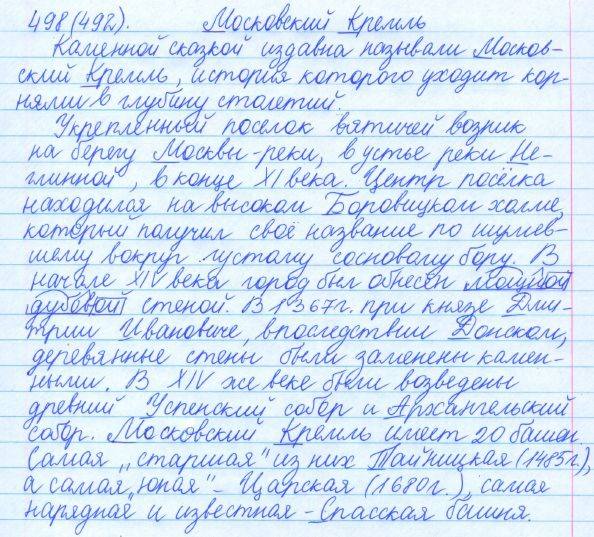 498(492). Московский Кремль
Каменной сказкой издавна называли Москов-
ский Кремль, история которого уходит кор-
нями в глубину столетий.
Укрепленный поселок вятичей возник
на берегу Москвы-реки, в устье реки Не-
глинной, в конце XI века. Центр посёлка
находился на высоком Боровицком холме,
который получил своё название по шумев-
шему вокруг густому сосновому бору. В
начале XIV века город был обнесен мощной
дубовой стеной. В 1367г. при князе Дми-
трии Ивановиче, впоследствии Донском,
деревянные стены были заменены камен-
ными. В XIV же веке были возведены
древний Успенский собор и Архангельский
собор. Московский Кремль имеет 20 башен.
Самая „старшая" из них Тайницкая (1485г.),
а самая „юная" - Царская (1680г.), самая
нарядная и известная - Спасская башня.